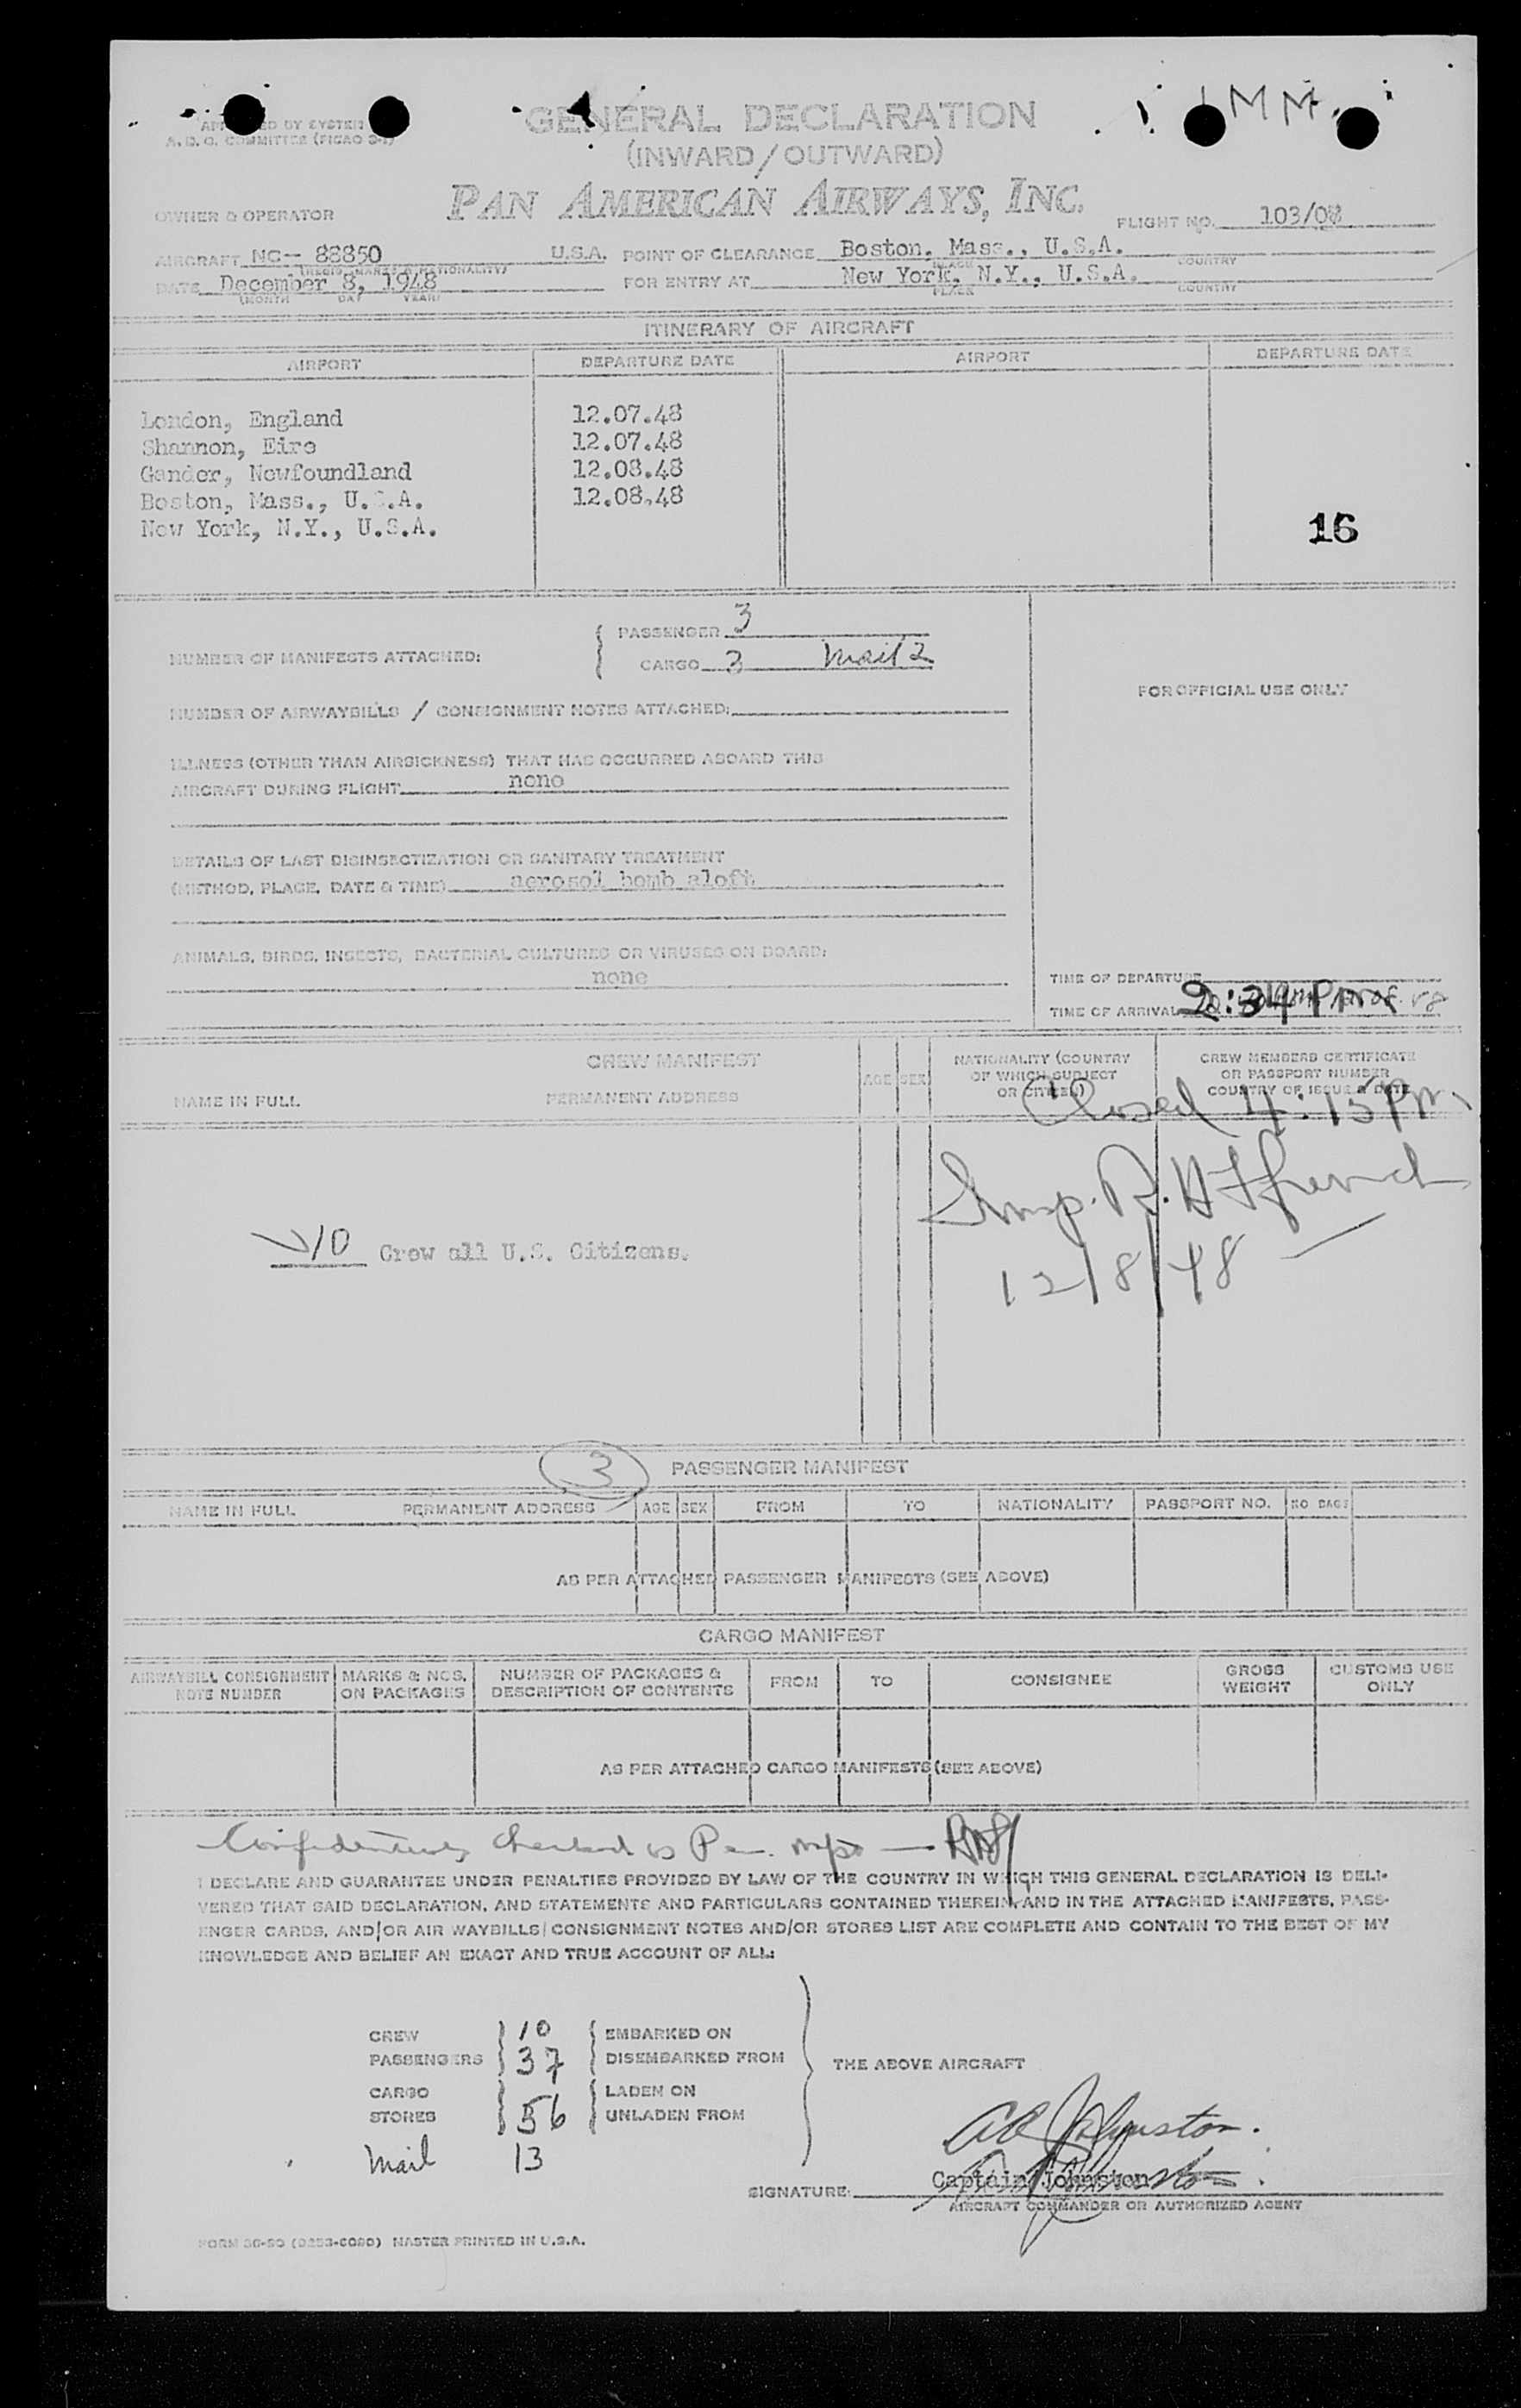 MM.
GENERAL DECLARATION
(INWARD/OUTWARD)
A.D.O. COMMITTEE (PICAO
PAN AMERICAN AIRWAYS, INC.
OWNER & OPERATOR
FLIGHT NO. 103/08
AIRCRAFT NC- 88850 U.S.A. POINT OF CLEARANCE Boston, Mass., U.S.A.
(REGIS. MARKS & NATIONALITY) PLACE COUNTRY
DATE December 8, 1948 FOR ENTRY AT New York, N.Y., U.S.A.
(MONTH DAY YEAR) PLACE COUNTRY
ITINERARY OF AIRCRAFT
AIRPORT DEPARTURE DATE AIRPORT DEPARTURE DATE
London, England 12.07.48
Shannon, Eire 12.07.48
Gander, Newfoundland 12.08.48
Boston, Mass., U.S.A. 12.08.48
New York, N.Y., U.S.A.
16
NUMBER OF MANIFESTS ATTACHED:
PASSENGER 3
CARGO 3 Mail 2
FOR OFFICIAL USE ONLY
NUMBER OF AIRWAYBILLS / CONSIGNMENT NOTES ATTACHED:
ILLNESS (OTHER THAN AIRSICKNESS) THAT HAS OCCURRED ABOARD THIS
AIRCRAFT DURING FLIGHT none
DETAILS OF LAST DISINSECTIZATION OR SANITARY TREATMENT
(METHOD, PLACE, DATE & TIME) aerosol bomb aloft
ANIMALS, BIRDS, INSECTS, BACTERIAL CULTURES OR VIRUSES ON BOARD:
none
TIME OF DEPARTURE
TIME OF ARRIVAL 2:34 PM
CREW MANIFEST
NAME IN FULL PERMANENT ADDRESS AGE SEX
NATIONALITY (COUNTRY
OF WHICH SUBJECT
OR CITIZEN)
CREW MEMBERS CERTIFICATE
OR PASSPORT NUMBER
COUNTRY OF ISSUE & DATE
Closed 4:15 Pm
Insp. R. H. Ffrench
12/8/48
10 Crew all U.S. Citizens.
3 PASSENGER MANIFEST
NAME IN FULL PERMANENT ADDRESS AGE SEX FROM TO NATIONALITY PASSPORT NO. NO BAGS
AS PER ATTACHED PASSENGER MANIFESTS (SEE ABOVE)
CARGO MANIFEST
AIRWAYBILL CONSIGNMENT NOTE NUMBER
MARKS & NOS. ON PACKAGES
NUMBER OF PACKAGES & DESCRIPTION OF CONTENTS
FROM TO CONSIGNEE
GROSS WEIGHT
CUSTOMS USE ONLY
AS PER ATTACHED CARGO MANIFESTS (SEE ABOVE)
I DECLARE AND GUARANTEE UNDER PENALTIES PROVIDED BY LAW OF THE COUNTRY IN WHICH THIS GENERAL DECLARATION IS DELI-
VERED THAT SAID DECLARATION, AND STATEMENTS AND PARTICULARS CONTAINED THEREIN, AND IN THE ATTACHED MANIFESTS, PASS-
ENGER CARDS, AND/OR AIR WAYBILLS/CONSIGNMENT NOTES AND/OR STORES LIST ARE COMPLETE AND CONTAIN TO THE BEST OF MY
KNOWLEDGE AND BELIEF AN EXACT AND TRUE ACCOUNT OF ALL:
CREW 10 EMBARKED ON
PASSENGERS 37 DISEMBARKED FROM
THE ABOVE AIRCRAFT
CARGO LADEN ON
STORES 56 UNLADEN FROM
Mail 13
Johnston.
Captain Johnston
SIGNATURE:
AIRCRAFT COMMANDER OR AUTHORIZED AGENT
MASTER PRINTED IN U.S.A.